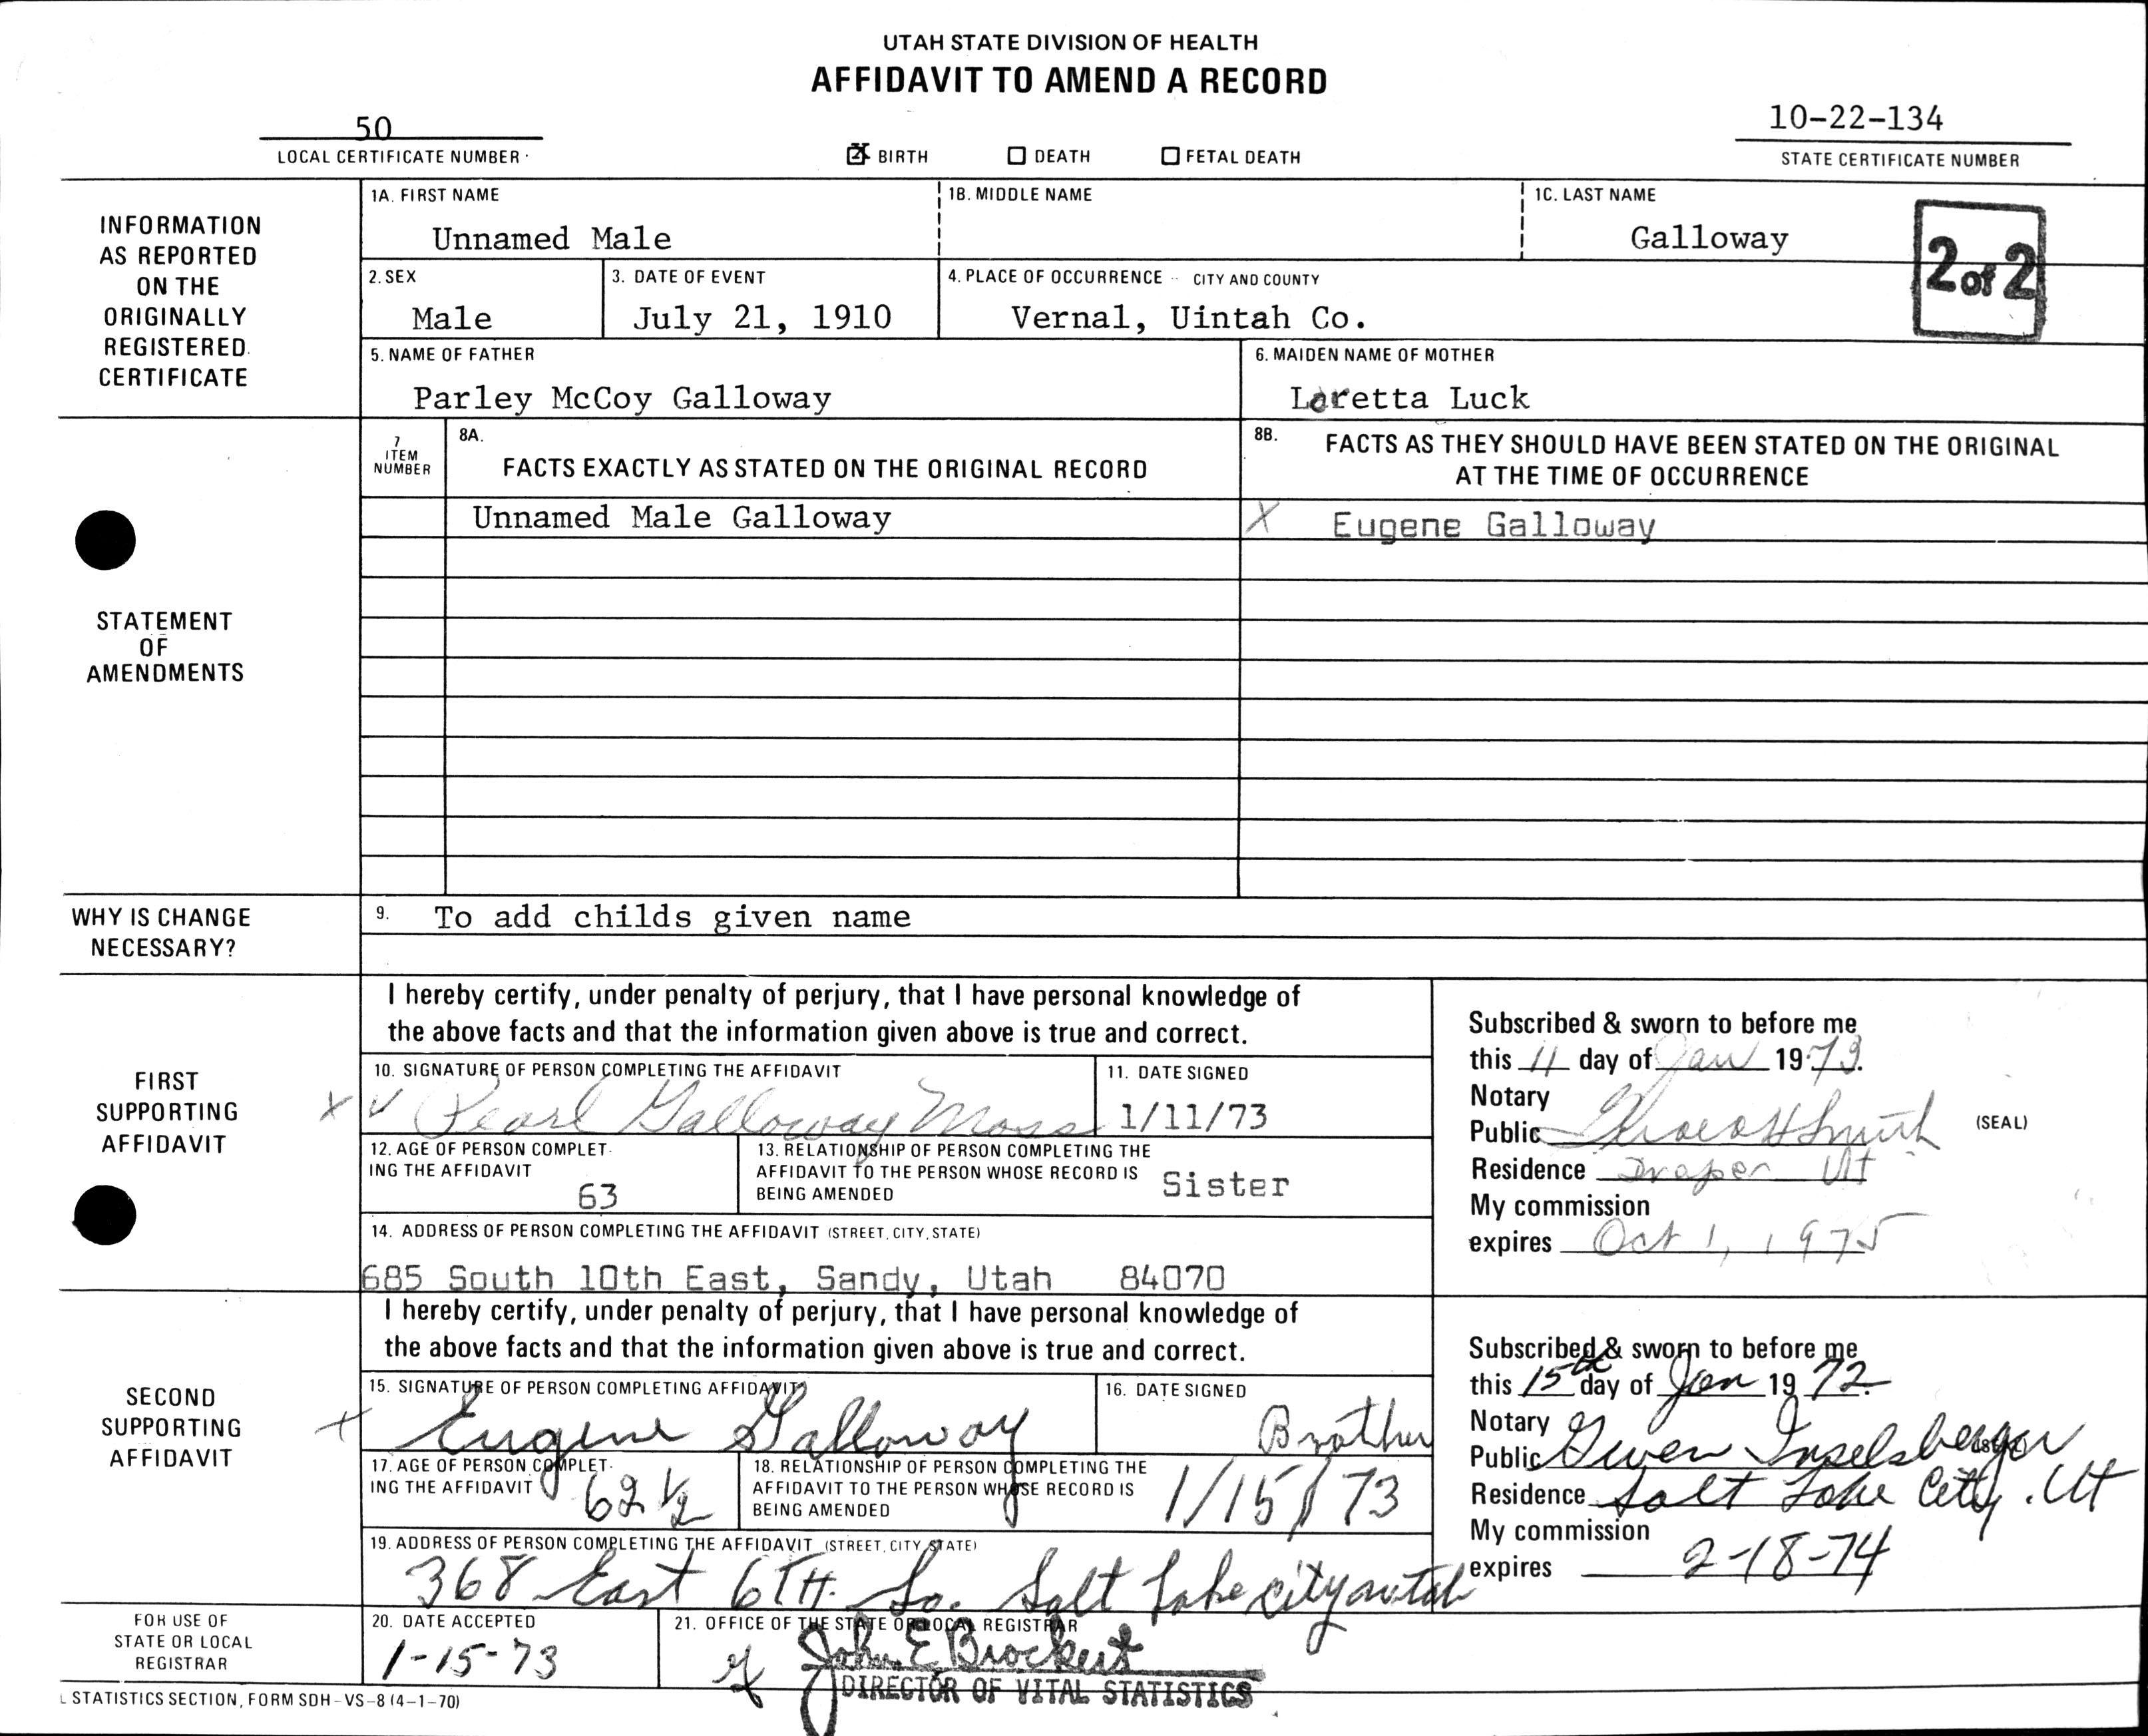 UTAH STATE DIVISION OF HEALTH
AFFIDAVIT TO AMEND A RECORD
50
LOCAL CERTIFICATE NUMBER
X BIRTH
DEATH
FETAL DEATH
10-22-134
STATE CERTIFICATE NUMBER
INFORMATION
AS REPORTED
ON THE
ORIGINALLY
REGISTERED
CERTIFICATE
1A. FIRST NAME
Unnamed Male
1B. MIDDLE NAME
1C. LAST NAME
Galloway
2 of 2
2. SEX
Male
3. DATE OF EVENT
July 21, 1910
4. PLACE OF OCCURRENCE -- CITY AND COUNTY
Vernal, Uintah Co.
5. NAME OF FATHER
Parley McCoy Galloway
6. MAIDEN NAME OF MOTHER
Loretta Luck
STATEMENT
OF
AMENDMENTS
7
ITEM
NUMBER
8A.
FACTS EXACTLY AS STATED ON THE ORIGINAL RECORD
8B.
FACTS AS THEY SHOULD HAVE BEEN STATED ON THE ORIGINAL
AT THE TIME OF OCCURRENCE
Unnamed Male Galloway
X Eugene Galloway
WHY IS CHANGE
NECESSARY?
9. To add childs given name
FIRST
SUPPORTING
AFFIDAVIT
I hereby certify, under penalty of perjury, that I have personal knowledge of
the above facts and that the information given above is true and correct.
10. SIGNATURE OF PERSON COMPLETING THE AFFIDAVIT
X Pearl Galloway Moss
11. DATE SIGNED
1/11/73
12. AGE OF PERSON COMPLET-
ING THE AFFIDAVIT
63
13. RELATIONSHIP OF PERSON COMPLETING THE
AFFIDAVIT TO THE PERSON WHOSE RECORD IS
BEING AMENDED
Sister
14. ADDRESS OF PERSON COMPLETING THE AFFIDAVIT (STREET, CITY, STATE)
685 South 10th East, Sandy, Utah 84070
Subscribed & sworn to before me
this 11 day of Jan 1973.
Notary
Public Smith (SEAL)
Residence Draper Ut
My commission
expires Oct 1, 1975
SECOND
SUPPORTING
AFFIDAVIT
I hereby certify, under penalty of perjury, that I have personal knowledge of
the above facts and that the information given above is true and correct.
15. SIGNATURE OF PERSON COMPLETING AFFIDAVIT
Eugene Galloway
16. DATE SIGNED
Brother
17. AGE OF PERSON COMPLET-
ING THE AFFIDAVIT
62 1/2
18. RELATIONSHIP OF PERSON COMPLETING THE
AFFIDAVIT TO THE PERSON WHOSE RECORD IS
BEING AMENDED
1/15/73
19. ADDRESS OF PERSON COMPLETING THE AFFIDAVIT (STREET, CITY, STATE)
368 East 6TH. So. Salt Lake city utah
Subscribed & sworn to before me
this 15th day of Jan 1972.
Notary
Public Gwen Inselsberger
Residence Salt Lake City. Ut
My commission
expires 2-18-74
FOR USE OF
STATE OR LOCAL
REGISTRAR
20. DATE ACCEPTED
1-15-73
21. OFFICE OF THE STATE OR LOCAL REGISTRAR
John E Brockert
DIRECTOR OF VITAL STATISTICS
L STATISTICS SECTION, FORM SDH-VS-8 (4-1-70)